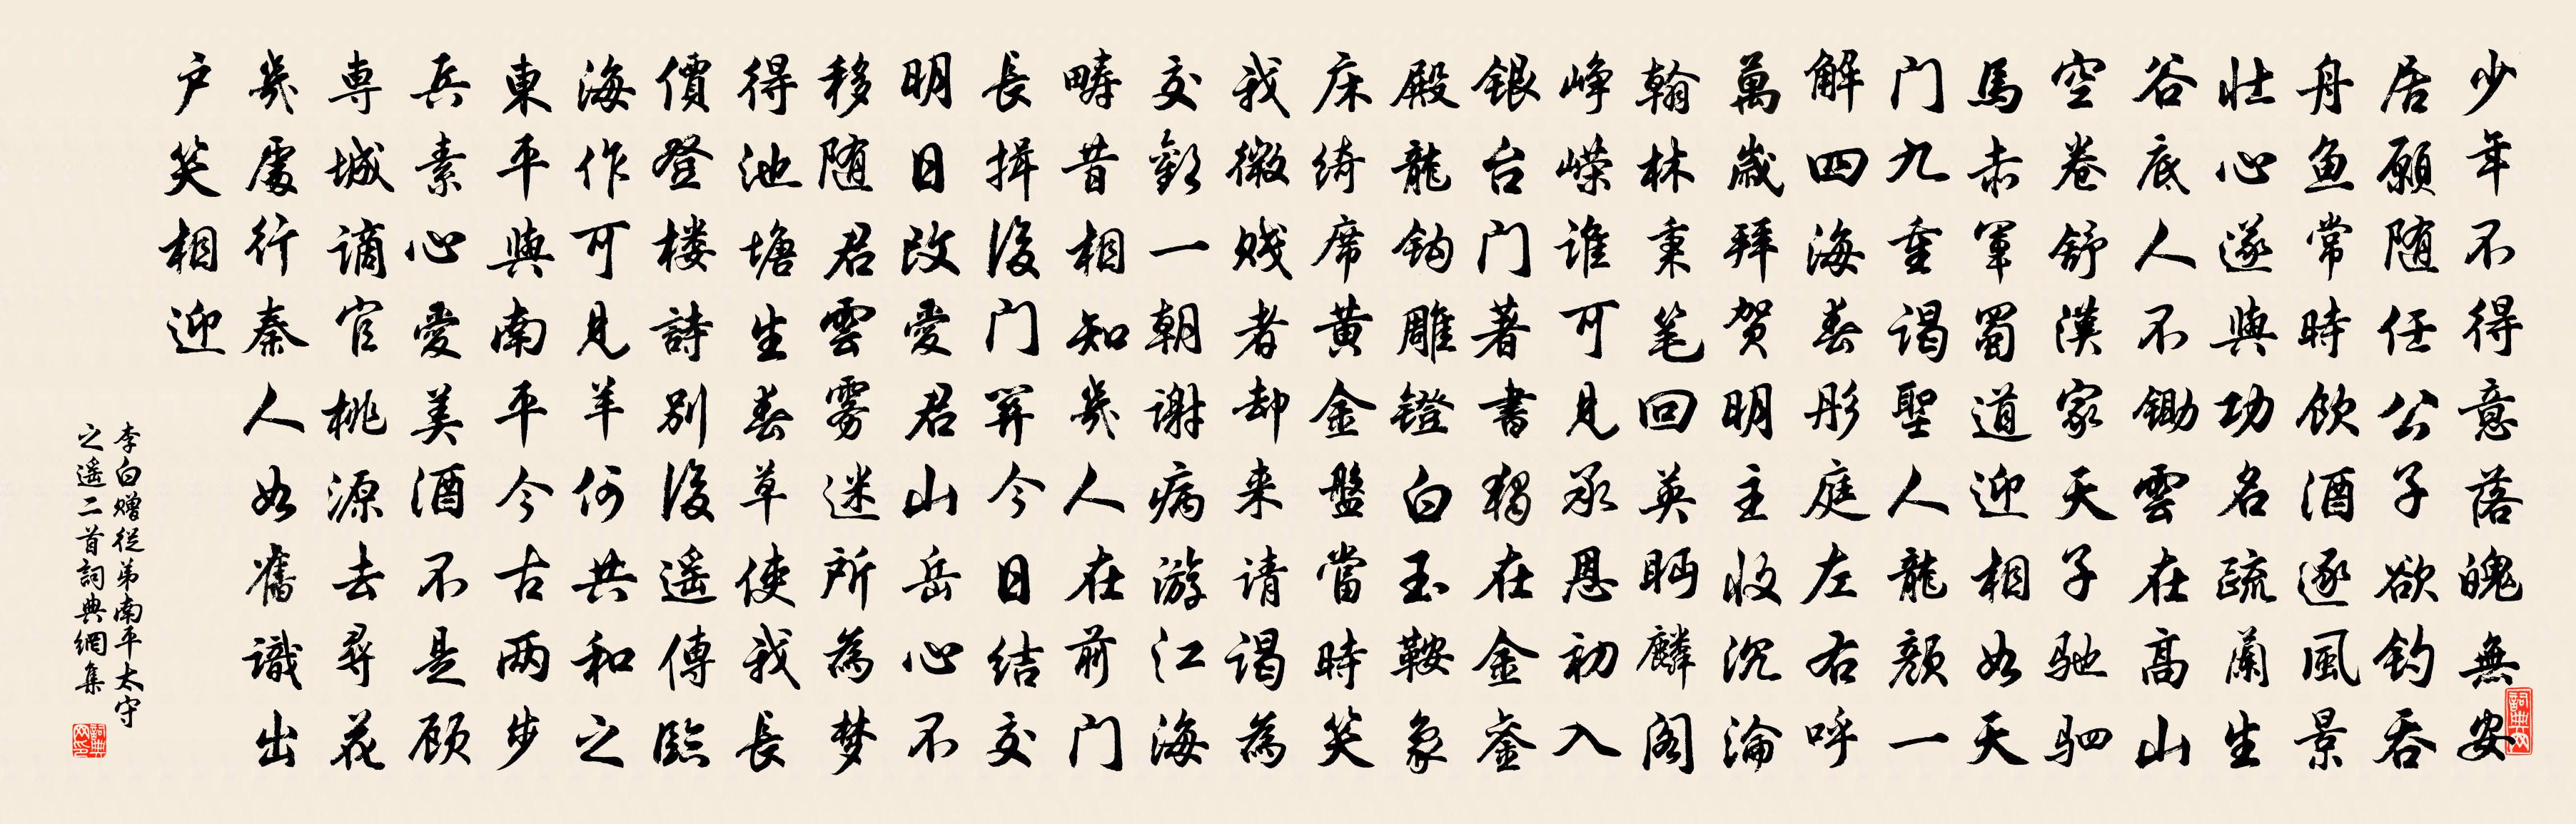 少年不得意落魄無安
居願随任公子欲钓吞
舟鱼常時飲酒逐風景
壮心遂與功名疏蘭生
谷底人不锄雲在高山
空卷舒漢家天子驰驷
馬赤軍蜀道迎相如天
门九重谒聖人龍顏一
解四海春彤庭左右呼
萬歲拜贺明主收沉淪
翰林秉笔回英眄麟阁
峥嵘谁可見承恩初入
银台门著書独在金銮
殿龍钩雕镫白玉鞍象
床绮席黄金盤當時笑
我微贱者却来请谒為
交歡一朝谢病游江海
疇昔相知幾人在前门
長揖後门開今日结交
明日改愛君山岳心不
移随君雲雾迷所為梦
得池塘生春草使我長
價登楼詩别後遥傳臨
海作可見羊何共和之
東平與南平今古两步
兵素心愛美酒不是顾
專城谪官桃源去尋花
幾處行秦人如舊識出
户笑相迎
李白赠從弟南平太守
之遥二首詞典網集
詞典网
詞典网印